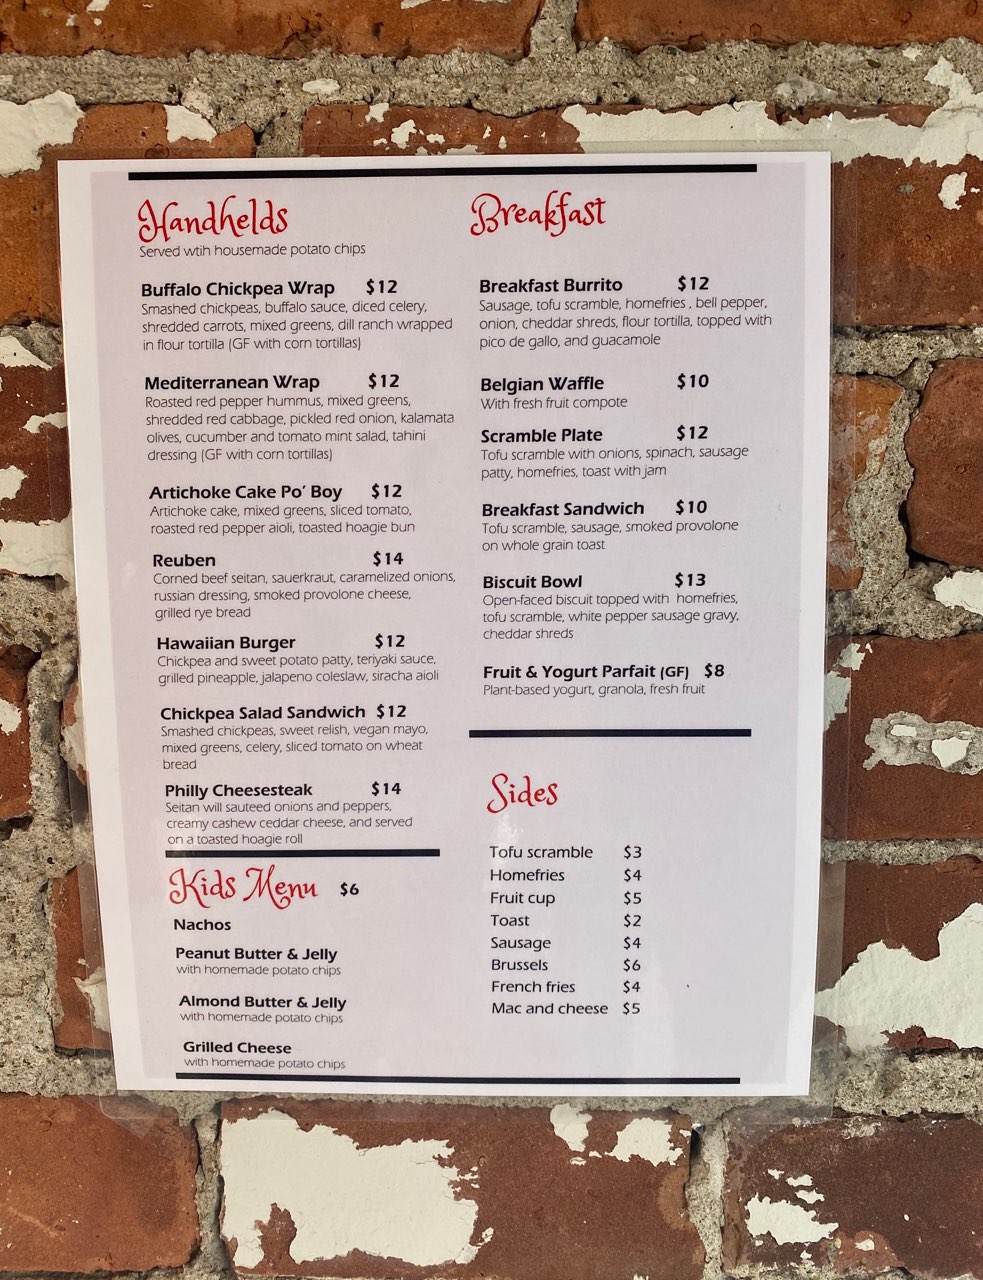 Handhelds
Served wtih housemade potato chips
Buffalo Chickpea Wrap $12
Smashed chickpeas, buffalo sauce, diced celery,
shredded carrots, mixed greens, dill ranch wrapped
in flour tortilla (GF with corn tortillas)
Mediterranean Wrap $12
Roasted red pepper hummus, mixed greens,
shredded red cabbage, pickled red onion, kalamata
olives, cucumber and tomato mint salad, tahini
dressing (GF with corn tortillas)
Artichoke Cake Po' Boy $12
Artichoke cake, mixed greens, sliced tomato,
roasted red pepper aioli, toasted hoagie bun
Reuben $14
Corned beef seitan, sauerkraut, caramelized onions,
russian dressing, smoked provolone cheese,
grilled rye bread
Hawaiian Burger $12
Chickpea and sweet potato patty, teriyaki sauce,
grilled pineapple, jalapeno coleslaw, siracha aioli
Chickpea Salad Sandwich $12
Smashed chickpeas, sweet relish, vegan mayo,
mixed greens, celery, sliced tomato on wheat
bread
Philly Cheesesteak $14
Seitan will sauteed onions and peppers,
creamy cashew ceddar cheese, and served
on a toasted hoagie roll
Kids Menu $6
Nachos
Peanut Butter & Jelly
with homemade potato chips
Almond Butter & Jelly
with homemade potato chips
Grilled Cheese
with homemade potato chips
Breakfast
Breakfast Burrito $12
Sausage, tofu scramble, homefries , bell pepper,
onion, cheddar shreds, flour tortilla, topped with
pico de gallo, and guacamole
Belgian Waffle $10
With fresh fruit compote
Scramble Plate $12
Tofu scramble with onions, spinach, sausage
patty, homefries, toast with jam
Breakfast Sandwich $10
Tofu scramble, sausage, smoked provolone
on whole grain toast
Biscuit Bowl $13
Open-faced biscuit topped with homefries,
tofu scramble, white pepper sausage gravy,
cheddar shreds
Fruit & Yogurt Parfait (GF) $8
Plant-based yogurt, granola, fresh fruit
Sides
Tofu scramble $3
Homefries $4
Fruit cup $5
Toast $2
Sausage $4
Brussels $6
French fries $4
Mac and cheese $5